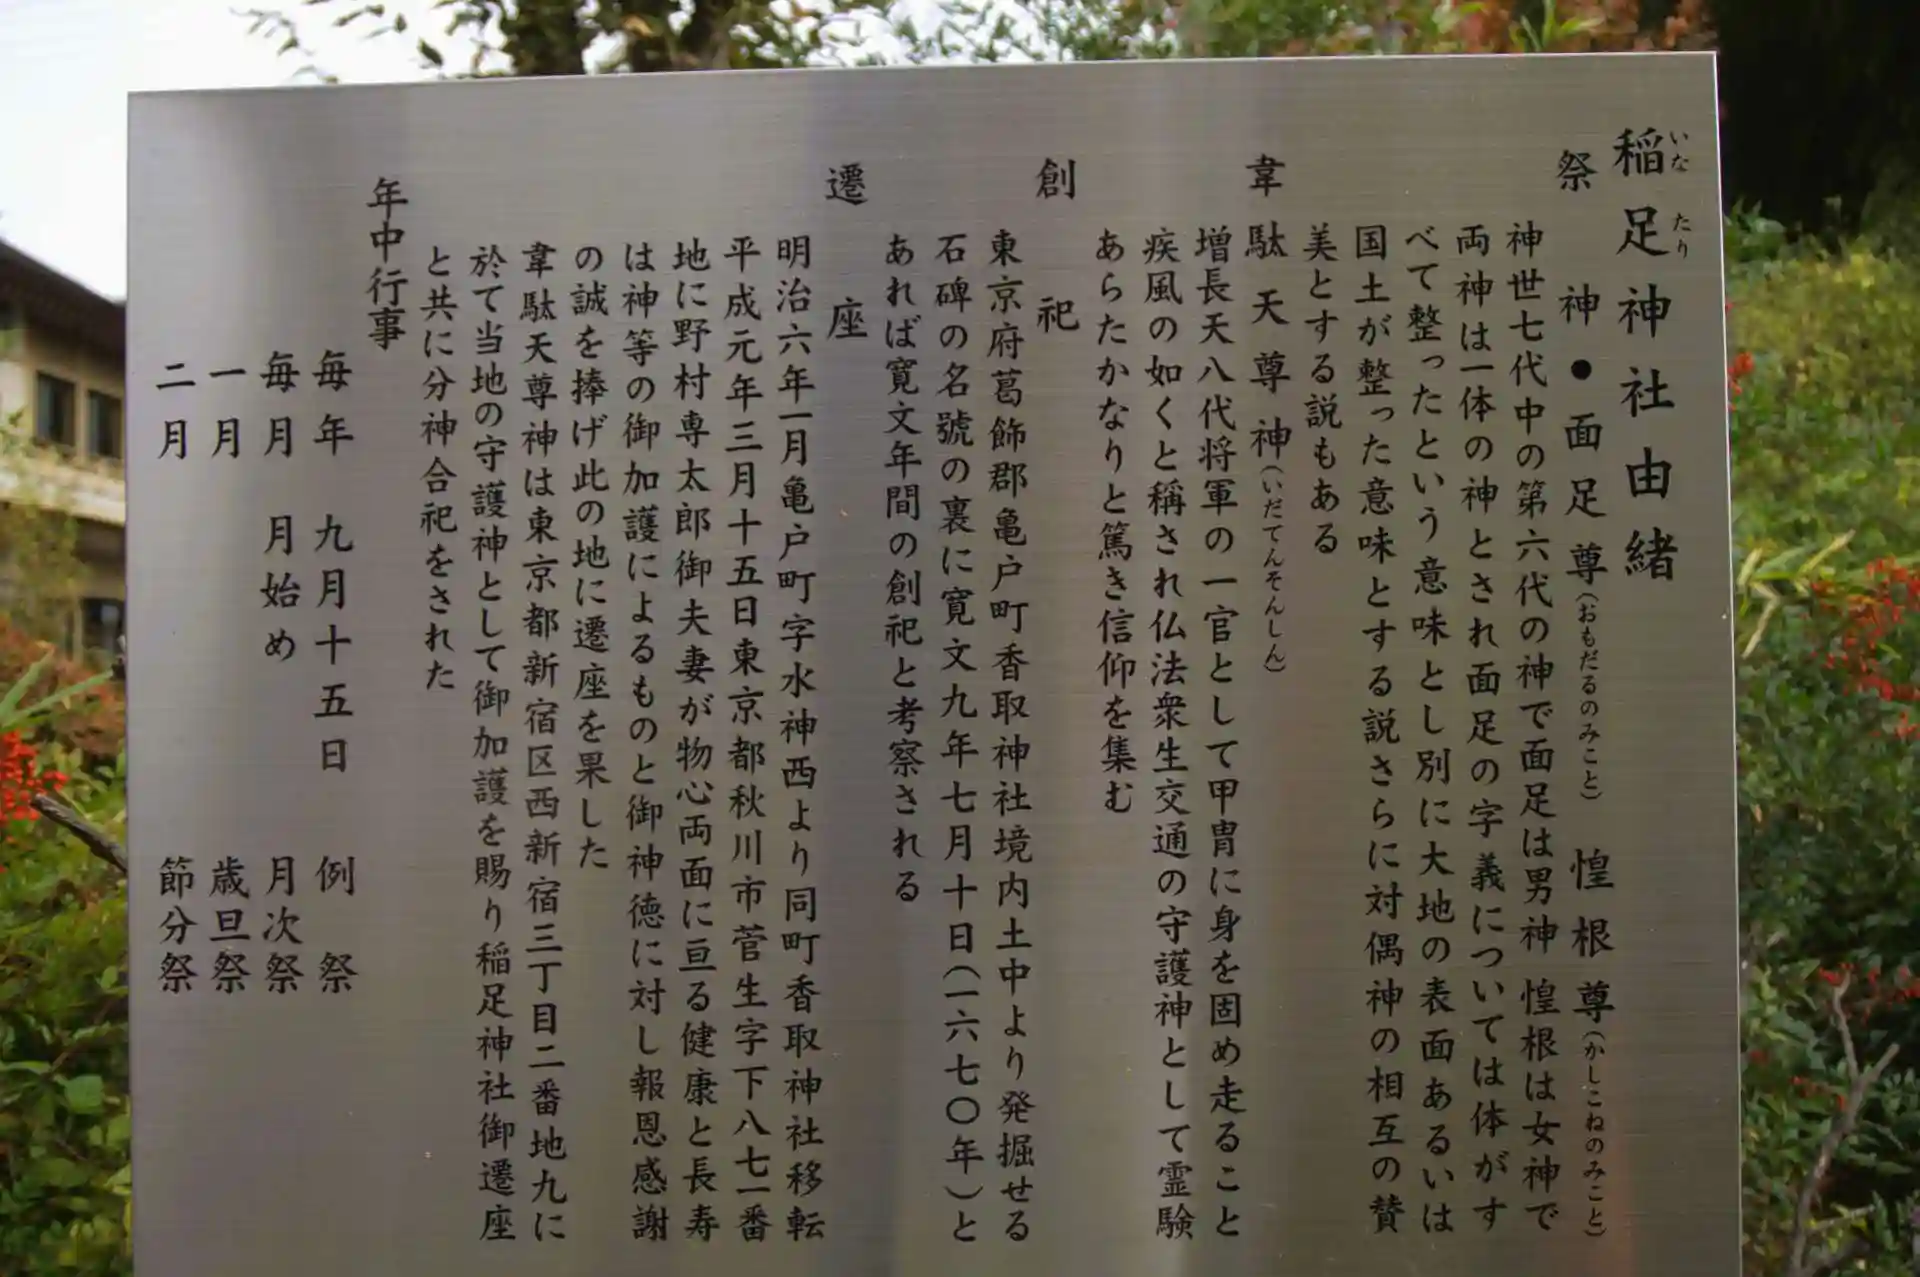 稲足神社由緒
いな たり
祭神●面足尊(おもだるのみこと) 惶根尊(かしこねのみこと)
神世七代中の第六代の神で面足は男神 惶根は女神で
両神は一体の神とされ面足の字義については体がす
べて整ったという意味とし別に大地の表面あるいは
国土が整った意味とする説さらに対偶神の相互の賛
美とする説もある
韋駄天尊神(いだてんそんしん)
増長天八代将軍の一官として甲冑に身を固め走ること
疾風の如くと稱され仏法衆生交通の守護神として霊験
あらたかなりと篤き信仰を集む
創祀
東京府葛飾郡亀戸町香取神社境内土中より発掘せる
石碑の名號の裏に寛文九年七月十日(一六七〇年)と
あれば寛文年間の創祀と考察される
遷座
明治六年一月亀戸町字水神西より同町香取神社移転
平成元年三月十五日東京都秋川市菅生字下八七一番
地に野村専太郎御夫妻が物心両面に亘る健康と長寿
は神等の御加護によるものと御神徳に対し報恩感謝
の誠を捧げ此の地に遷座を果した
韋駄天尊神は東京都新宿区西新宿三丁目二番地九に
於て当地の守護神として御加護を賜り稲足神社御遷座
と共に分神合祀をされた
年中行事
毎年 九月十五日 例祭
毎月 月始め 月次祭
一月 歳旦祭
二月 節分祭